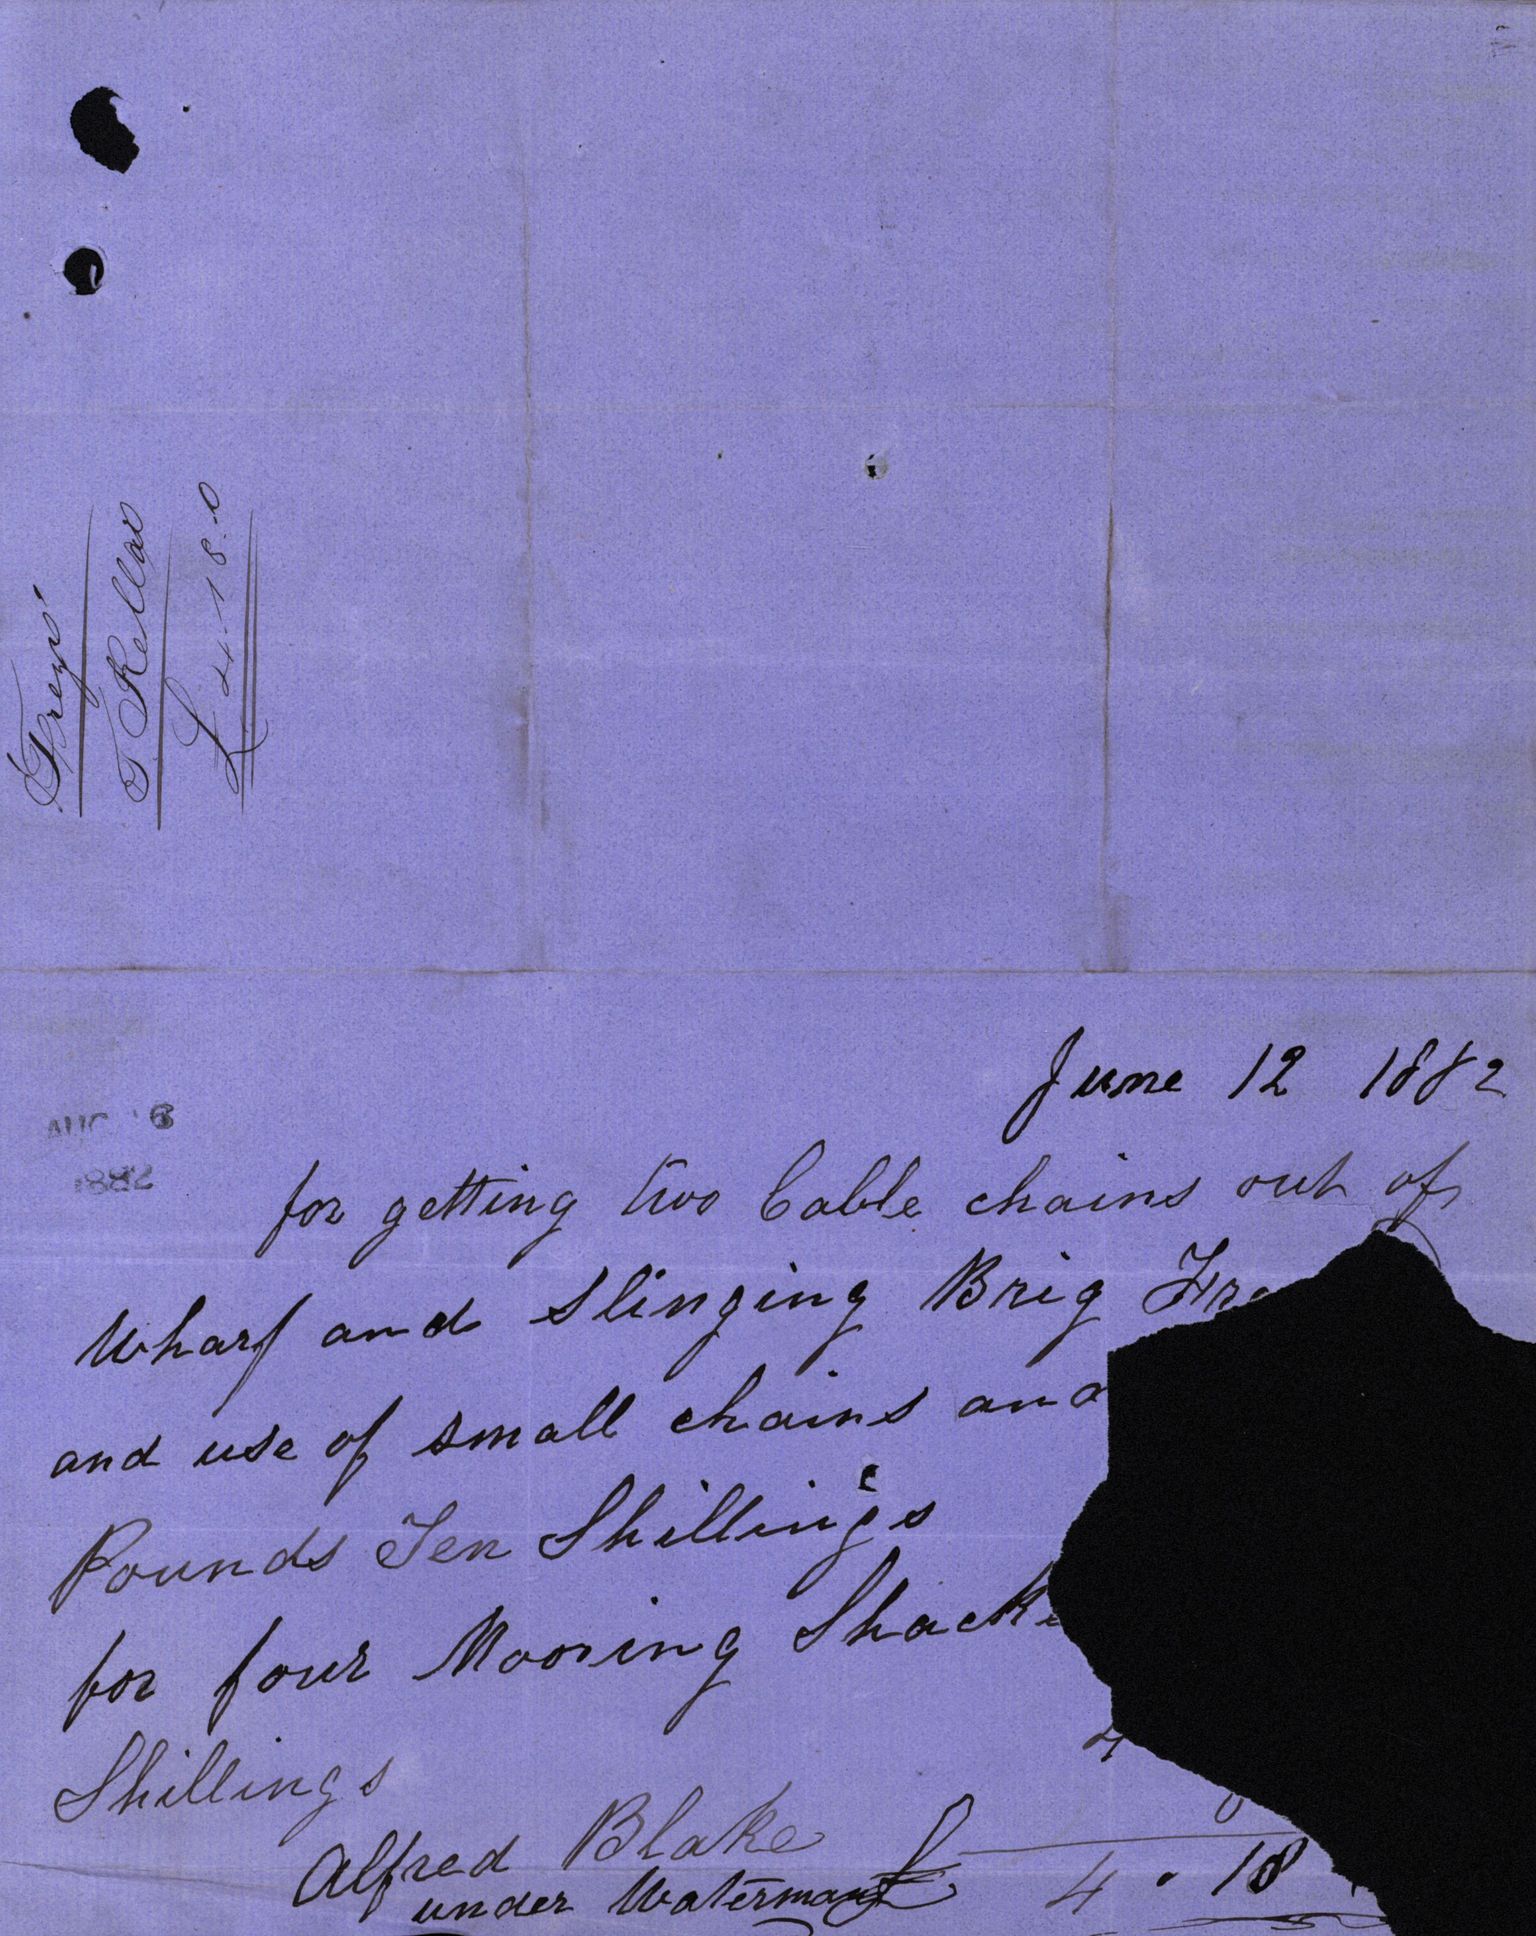 Frey'
T. Kellar
£ 4-18-0
June 12 1882
AUG 16
1882
for getting two Cable chains out of
Wharf and Slinging Brig
and use of small chains and
Pounds Ten Shillings
for four Mooring
4
Shillings
Alfred Blake
under Waterman £ 4 " 18